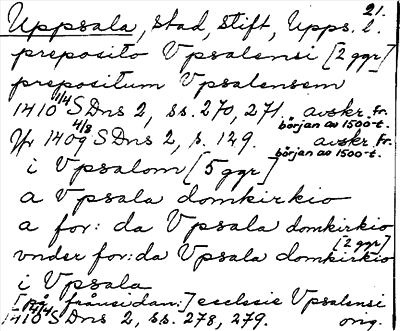 21.
Uppsala, stad, stift, Upps. l.
preposito Vpsalensi [2 ggr]
prepositum Vpsalensem
1410 11/4 SDns 2, ss. 270, 271. avskr. fr. början av 1500-t.
Yfr 1409 4/8 SDns 2, s. 149. avskr. fr. början av 1500-t.
i Vpsalom [5 ggr]
a Vpsala domkirkio
a for: da Vpsala domkirkio
vnder for: da Vpsala domkirkio [2 ggr]
i Vpsala
[På frånsidan:] ecclesie Vpsalensi
1410 14/4 SDns 2, ss. 278, 279. orig.